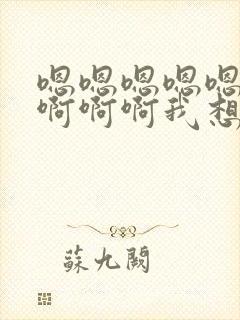 嗯嗯嗯嗯嗯
啊啊啊我想
蘇九闕